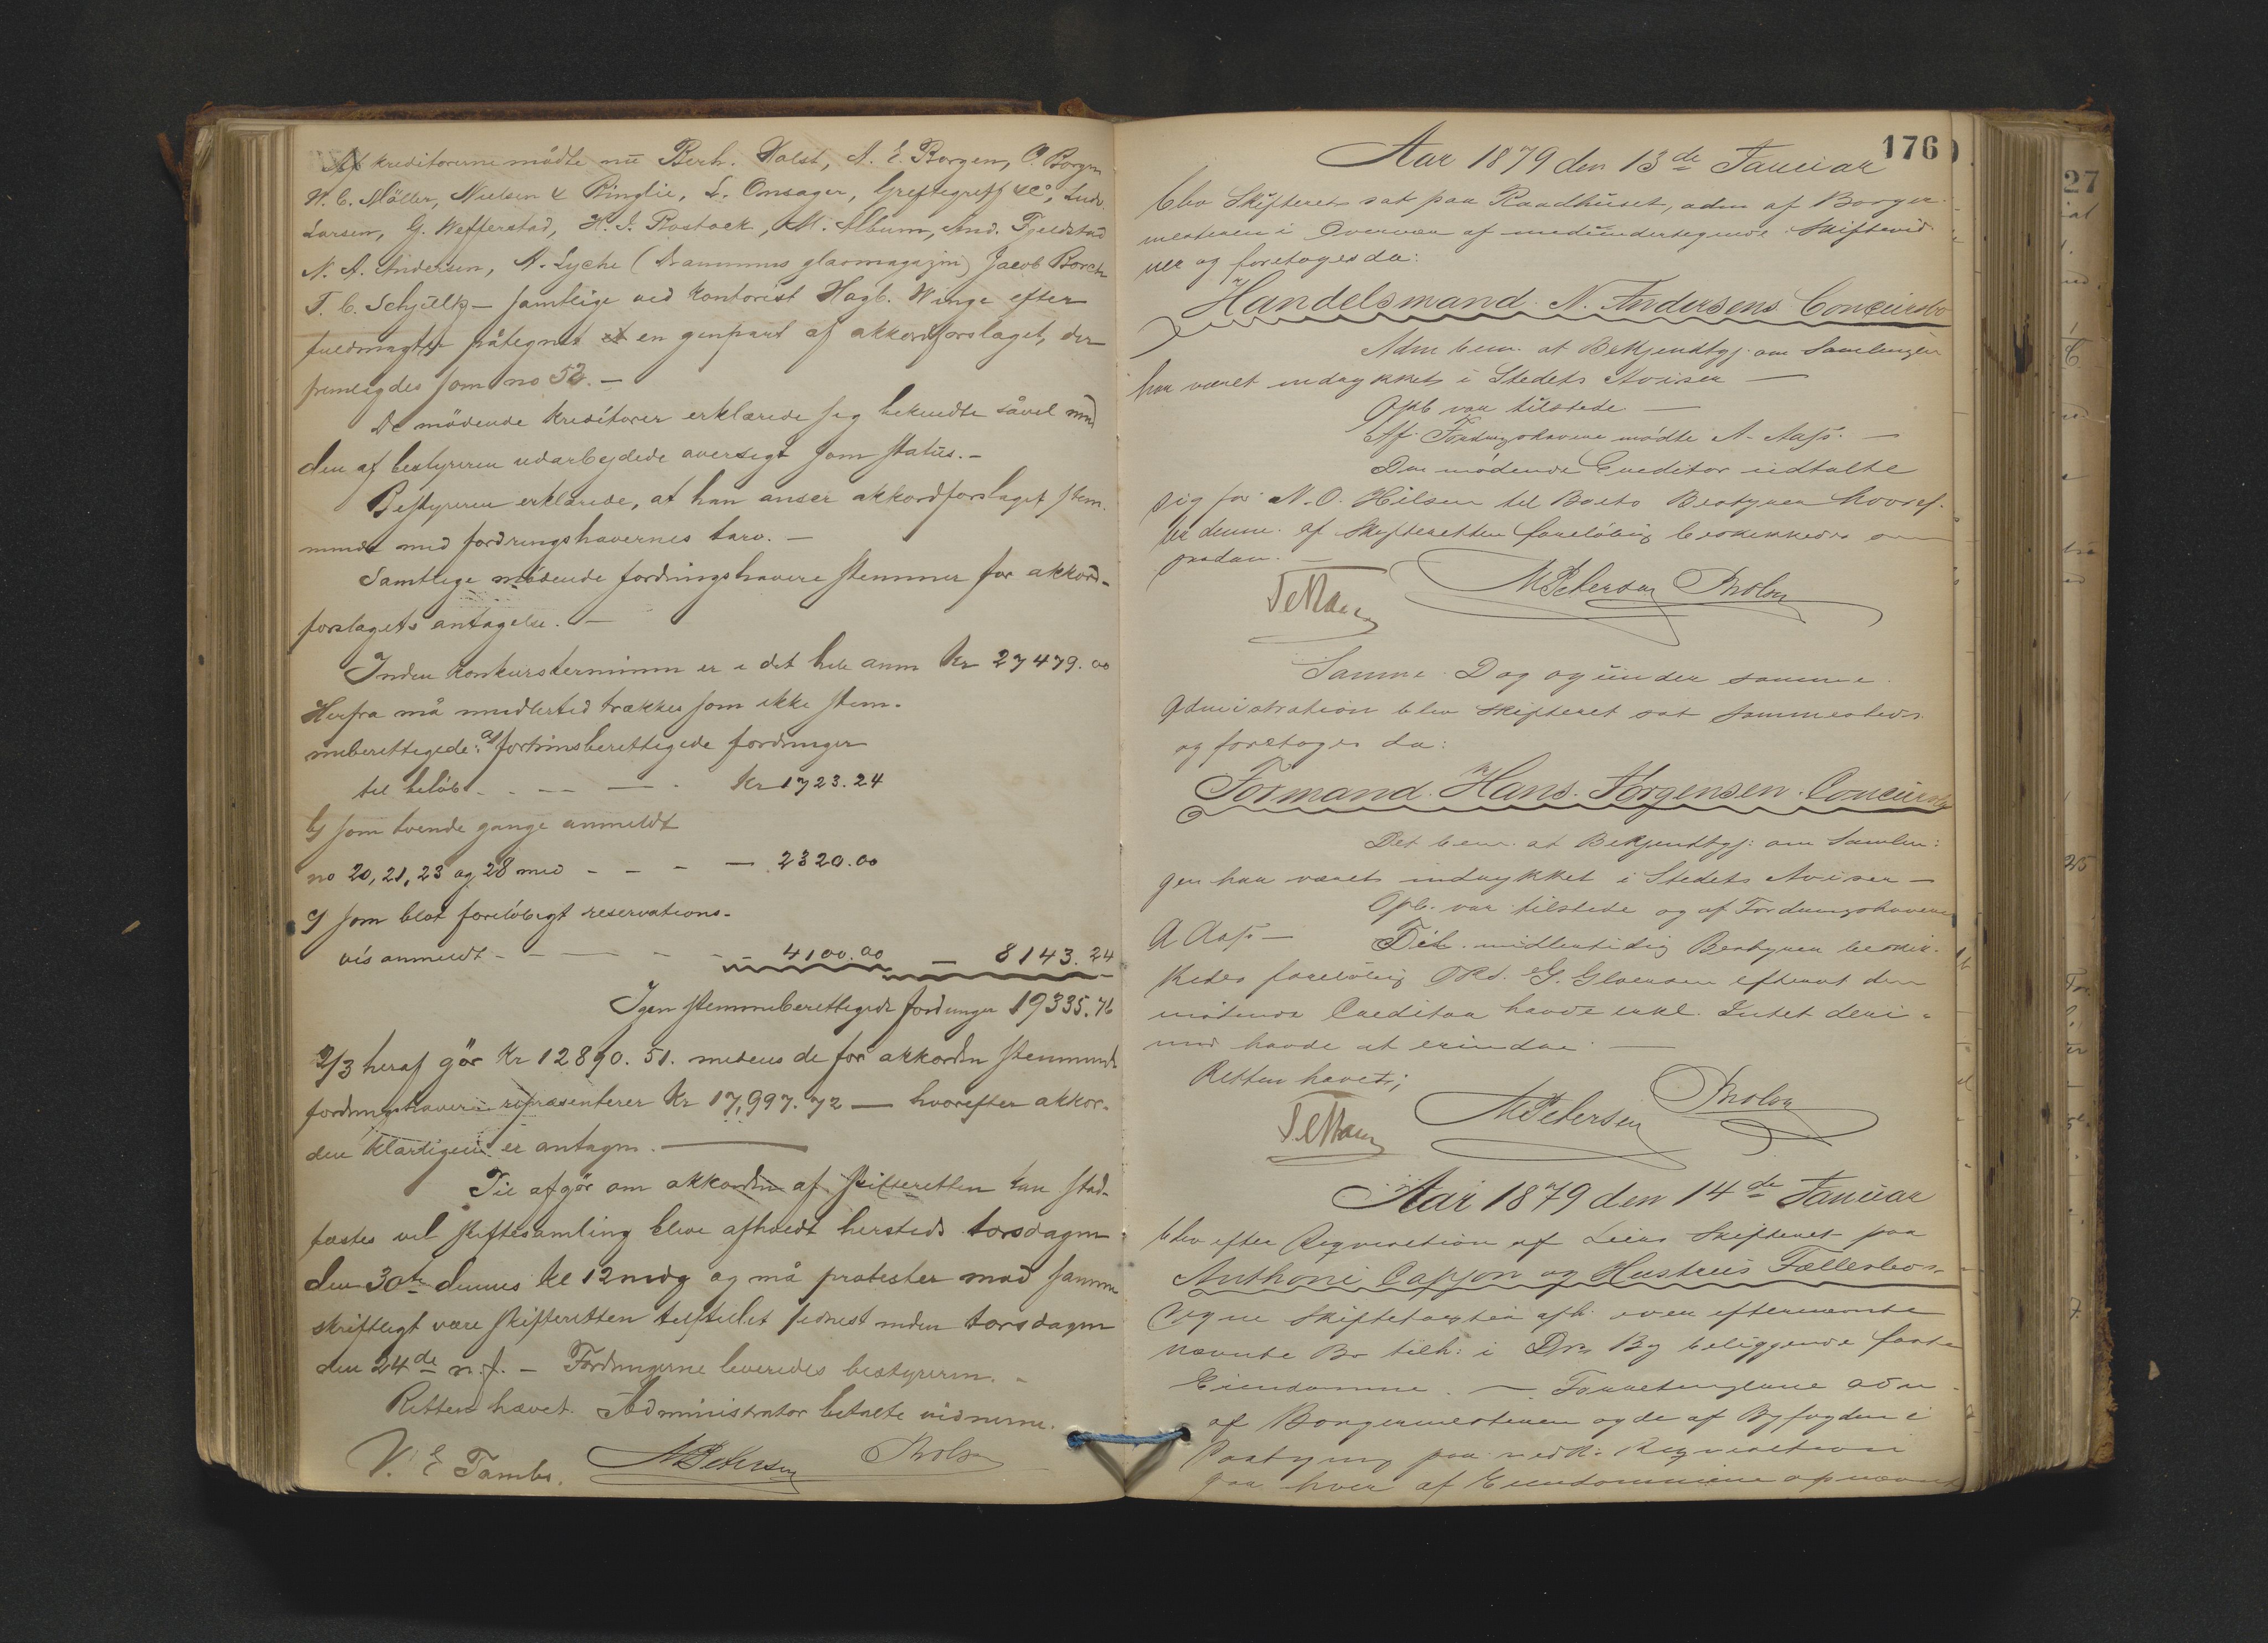 Af kreditorerne mödte nu Berh. Holst, A. E. Borgen, O. Borgen
W. C. Möller, Nielsen & Ringlie, L. Onsager, & Co, Ludv.
Larsen, G. Wefferstad, H. J. Rostock, M. Album, And. Fjeldstad
N. A. Andersen, A. Lyche (Drammens glasmagazin) Jacob Borch
T. C. Schjelb – samtlige ved kontorist Hagb. Winge efter
fuldmagter påtegnet en genpart af akkordforslaget, der
fremlagdes som no 52. –
De mödende kreditorer erklærede sig bekendte såvel med
den af bestyreren udarbejdede oversigt som status. –
Bestyreren erklærede, at han anser akkordforslaget stem-
mende med fordringshavernes tarv. –
Samtlige mödende fordringshavere stemmer for akkord-
forslagets antagelse. –
Inden konkursterminen er i det hele anm Kr 27479.00
Herfra må imidlertid trækkes som ikke stem-
meberettigede: a) fortrinsberettigede fordringer
til belöb - - - - Kr 1723.24
b) som tvende gange anmeldt
no 20, 21, 23 og 28 med - - - — 2320.00
c) som blot foreløbigt reservations-
vis anmeldt - - - - 4100.00 — 8143.24
Igen stemmeberettigede fordringer 19335.76
2/3 heraf gör Kr 12890.51. medens de for akkorden stemmende
fordringshavere repræsenterer Kr 17,997.72 — hvorefter akkor-
den klarligen er antagen. —
Til afgör om akkorden af skifteretten kan stad-
fæstes vil skiftesamling blive afholdt hersteds torsdagen
den 30te dennes kl 12 mdg og må protester mod samme
skriftligt være skifteretten tilstillet senest inden torsdagen
den 24de n.f. – Fordringerne leveredes bestyreren. –
Retten hævet. Administrator betalte vidnerne.
V. E Tambs. M Petersen
176
Aar 1879 den 13de Januar
blev Skifteret sat paa Raadhuset, adm af Borger-
mesteren i Overvær af medundertegnede Skiftevid-
ner og foretoges da:
Handelsmand N. Andersens Concursbo
Adm bem. at Bekjendtgj. om Samlingen
har været indrykket i Stedets Aviser —
Opb var tilstede —
Af Fordringshavere mödte A. Aass. —
Den mödende Creditor udtalte
sig for N. O. Hilsen til Boets Bestyrer hvoref-
ter denne af Skifteretten foreløbig beskikkedes som
saadan. —
M Petersen
Samme Dag og under samme
Administration blev Skifteret sat sammesteds
og foretoges da:
Formand Hans Jørgensen Concursbo
Det bem. at Bekjendtgj: om Samlin:
gen har været indrykket i Stedets Aviser —
Opb. var tilstede og af Fordringshavere
A Aass — Til midlertidig Bestyrer beskik-
kedes foreløbig ORs. G. Gloersen efterat den
mødende Creditor havde erkl. Intet deri-
mod havde at erindre. —
Retten hævet;
M Petersen
Aar 1879 den 14de Januar
blev efter Reqvisition af Liers Skifteret paa
Anthoni Cappon og Hustrus Fællesbos
Vegne Skifteforretn afh. over efternævnte
nævnte Bo tilh: i Drs By beliggende faste
Eiendomme. — Forretningerne adm
af Borgermesteren og de af Byfogden i
paa nedk. Reqvisition
paa hver af Eiendommene opnævnte